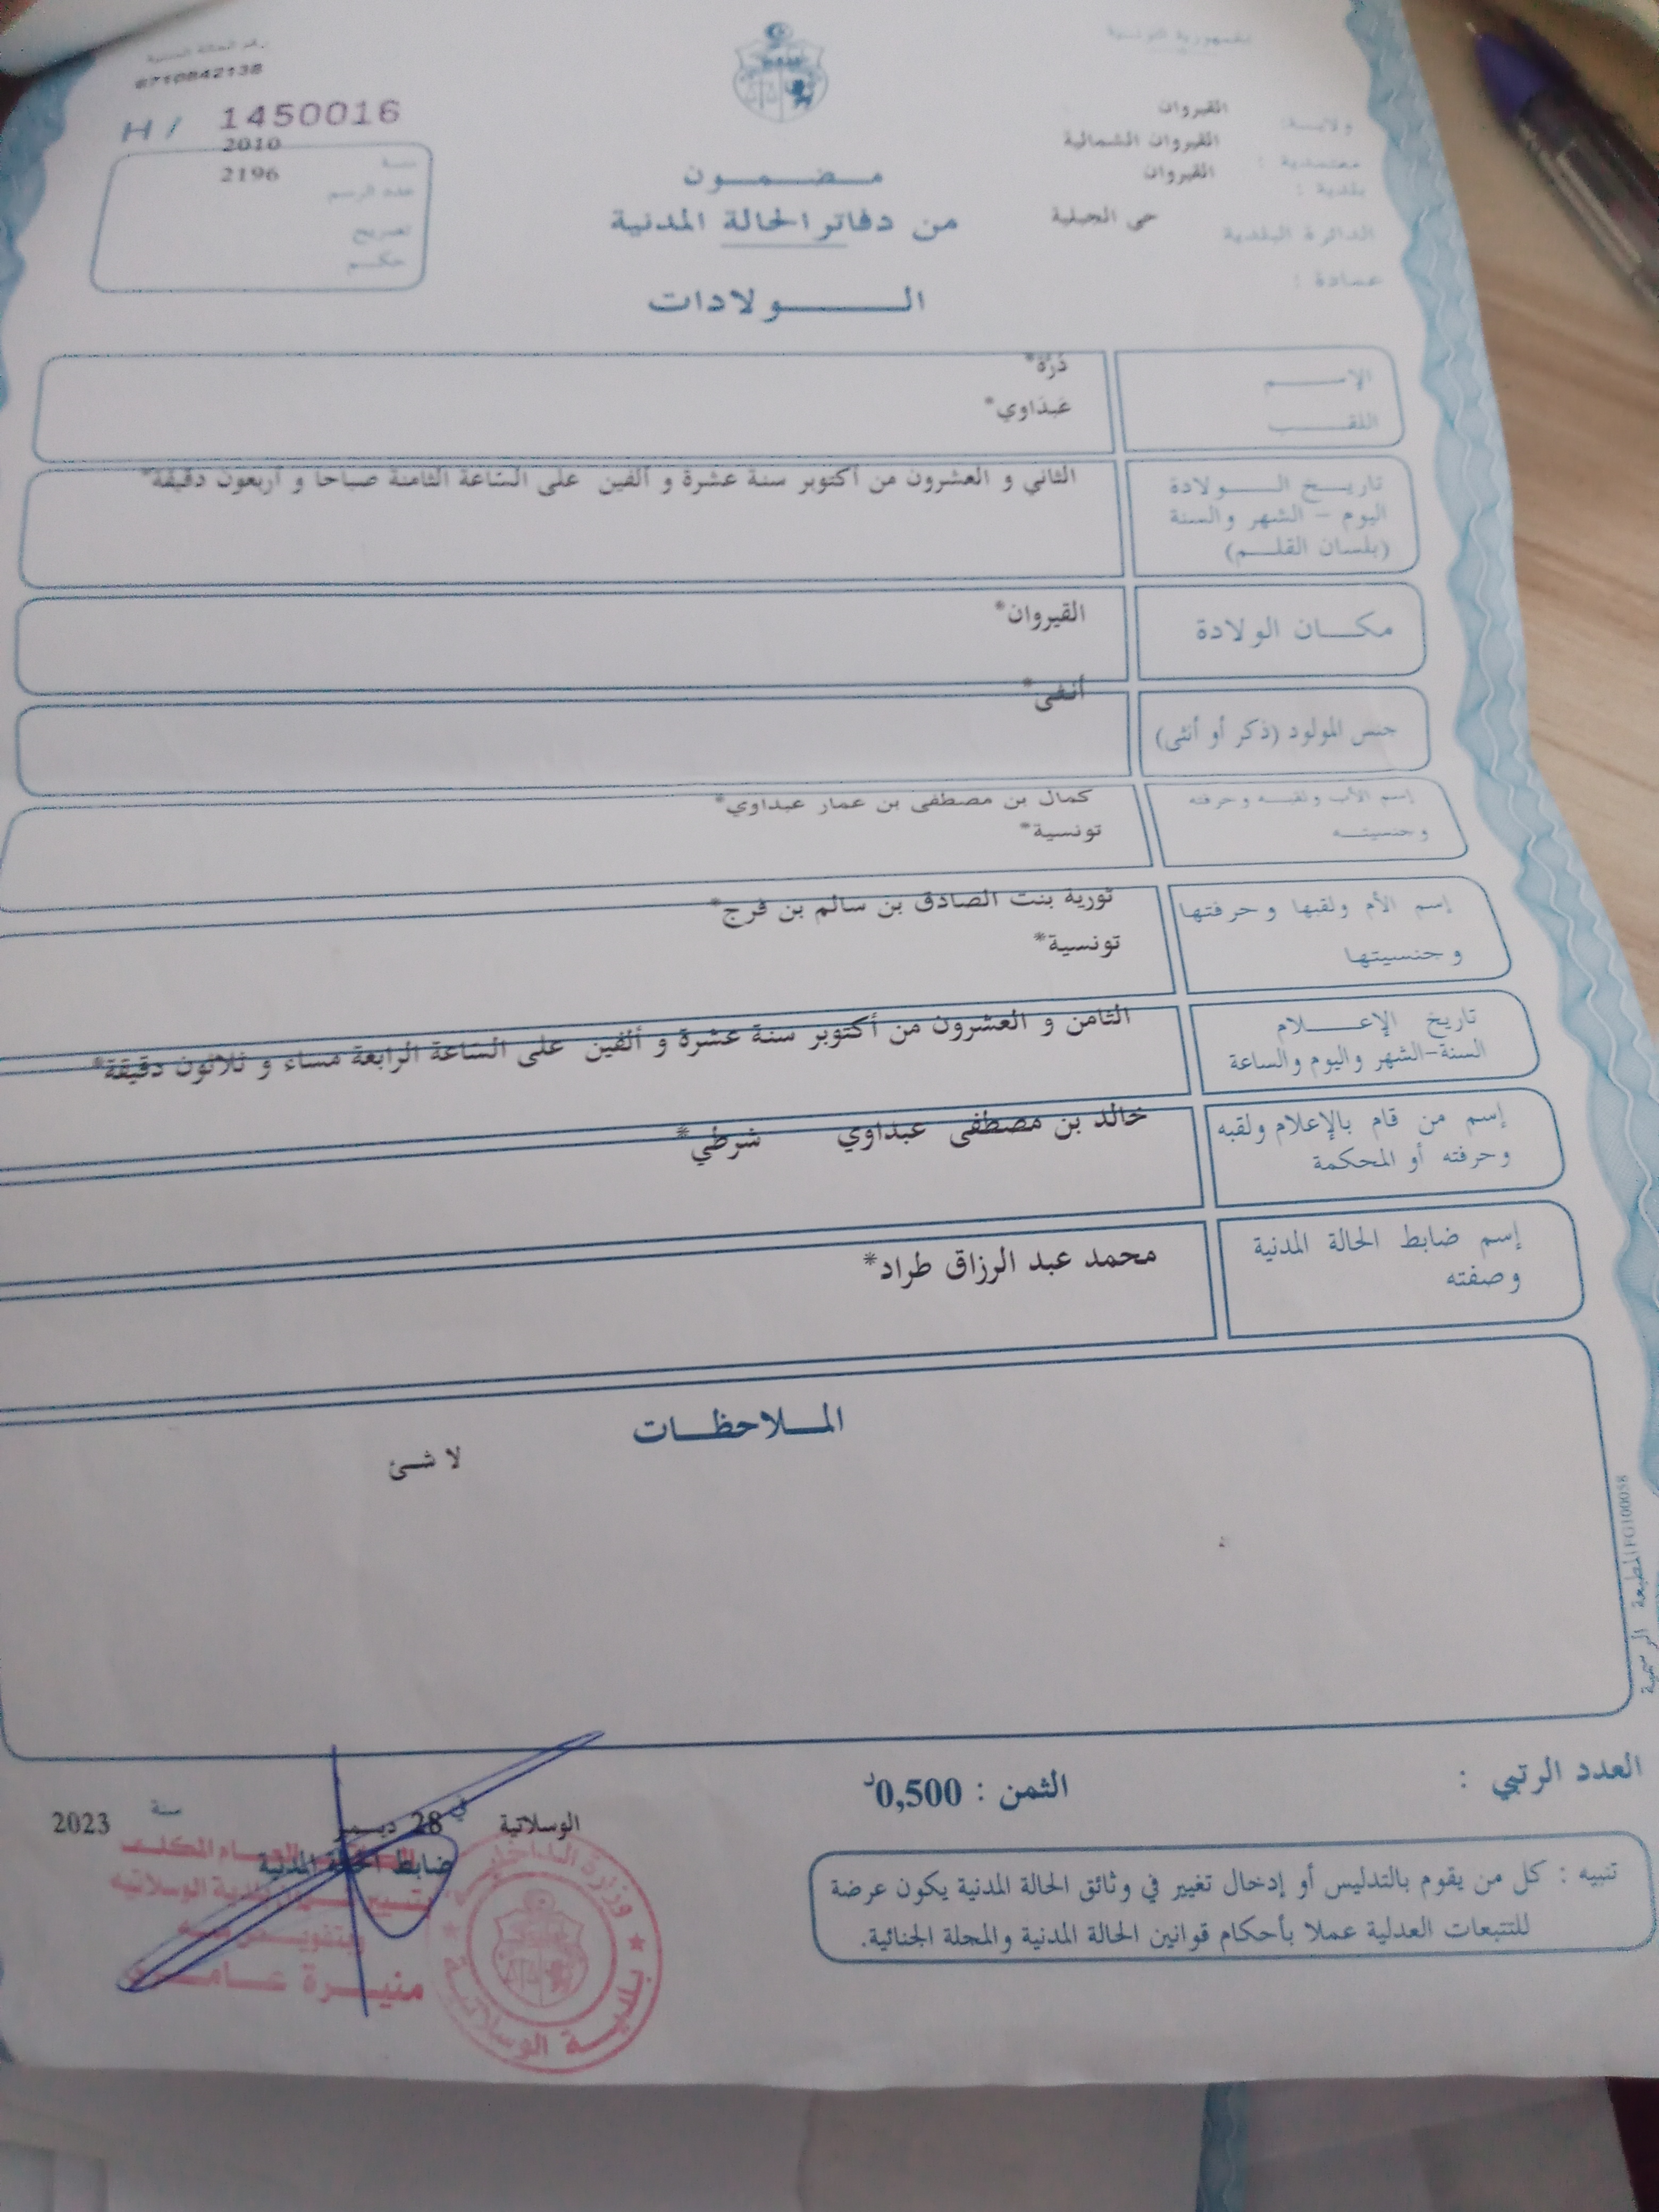 الجمهورية التونسية
رقم الحالة المدنية
6710842138
H/ 1450016
ولايــة: القيروان
معتمدية : القيروان الشمالية
بلدية : القيروان
الدائرة البلدية حي الجبلية
عمادة :
سنة 2010
عدد الرسم 2196
تصريح
حكــم
مــضــمــون
من دفاتر الحالة المدنية
الــــولادات
الإســــم دُرّة*
اللقــــب عَبدَاوي*
تاريــخ الــــولادة الثاني و العشرون من أكتوبر سنة عشرة و ألفين على السَاعة الثامنة صباحا و أربعون دقيقة*
اليوم – الشهر والسنة
(بلسان القلــم)
مكــان الولادة القيروان*
جنس المولود (ذكر أو أنثى) أنـثى*
إسم الأب ولقبــه وحرفته كمال بن مصطفى بن عمار عبداوي*
وجنسيتــه تونسية*
إسم الأم ولقبها وحرفتها نورية بنت الصادق بن سالم بن فرج*
وجنسيتها تونسية*
تاريخ الإعــــلام الثامن و العشرون من أكتوبر سنة عشرة و ألفين على السَاعة الرابعة مساء و ثلاثون دقيقة*
السنة-الشهر واليوم والساعة
إسم من قام بالإعلام ولقبه خالد بن مصطفى عبداوي شرطي*
وحرفته أو المحكمة
إسم ضابط الحالة المدنية محمد عبد الرزاق طراد*
وصفته
المــلاحظــات
لا شــئ
المطبعة الرسمية FG100058
العدد الرتبي :
الثمن : 0,500د
الوسلاتية في 28 ديـمبر سنة 2023
ضابط الحالة المدنية
العــام المكلــف
بتسيير شــؤون بلدية الوسلاتيه
وبتفويــض منــه
منيــرة عــامــر
وزارة الداخلية
بلديــة الوسلاتيــة
تنبيه : كل من يقوم بالتدليس أو إدخال تغيير في وثائق الحالة المدنية يكون عرضة
للتتبعات العدلية عملا بأحكام قوانين الحالة المدنية والمجلة الجنائية.